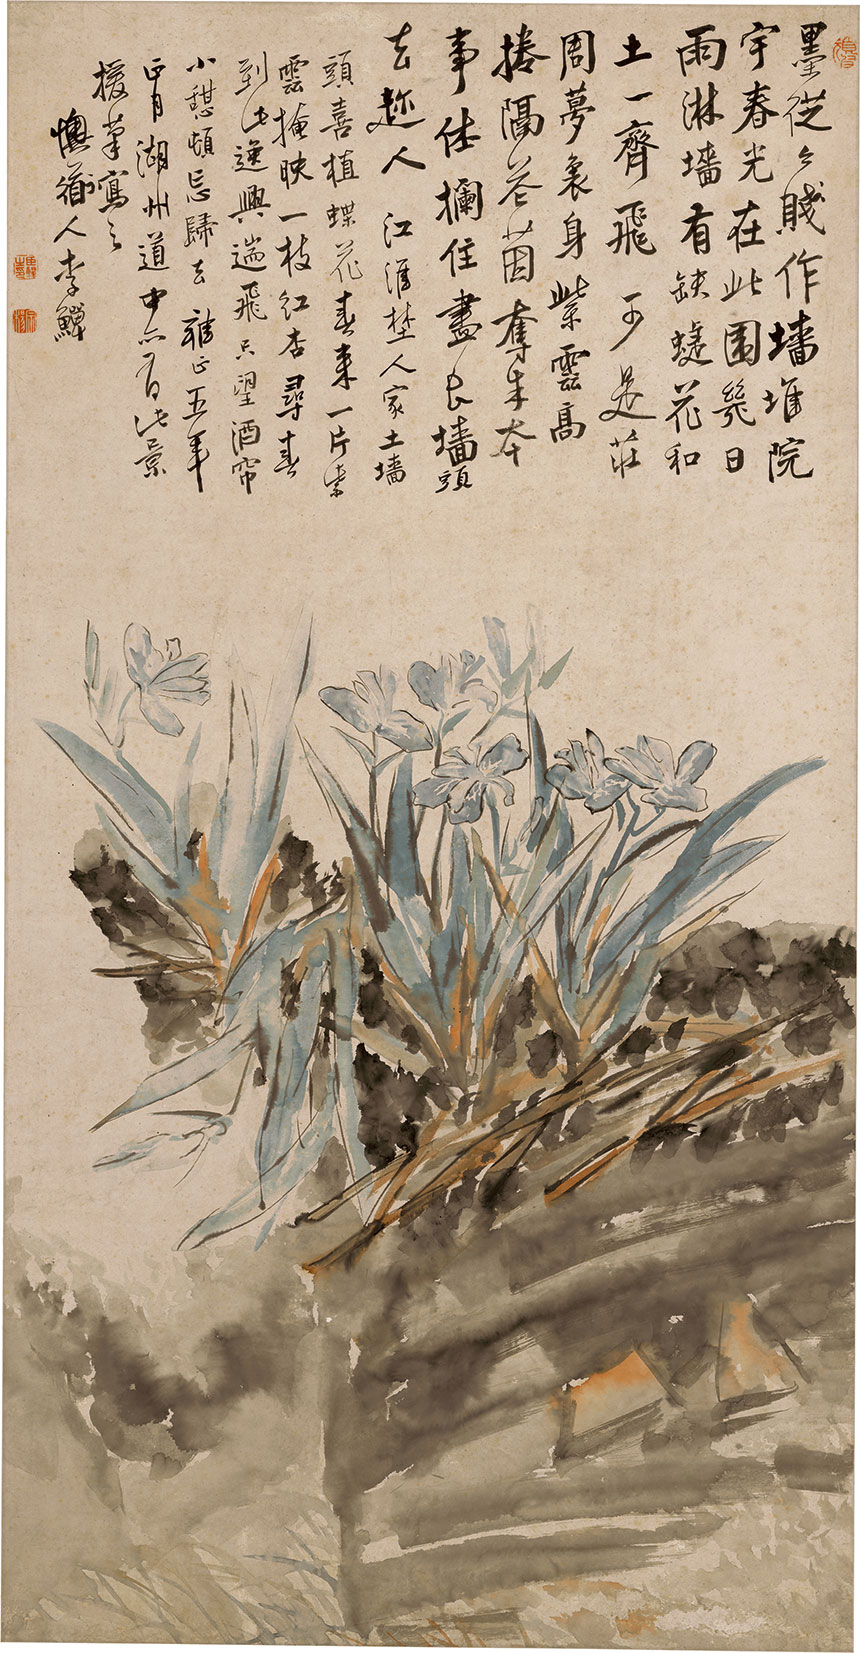 墨從今賤作墻堆院
宇春光在此圍幾日
雨淋墻有缺蜨花和
土一齊飛 可是莊
周夢裏身紫雲高
捲隔花茵奪朱本
事休攔住盡上墻頭
去趂人 江淮埜人家土墻
頭喜植蝶花春來一片紫
雲掩映一枝紅杏尋春
到此逸興遄飛只望酒帘
小憩頓忘歸去雍正五年
正月湖州道中亦有此景
援筆寫之
懊道人李鱓